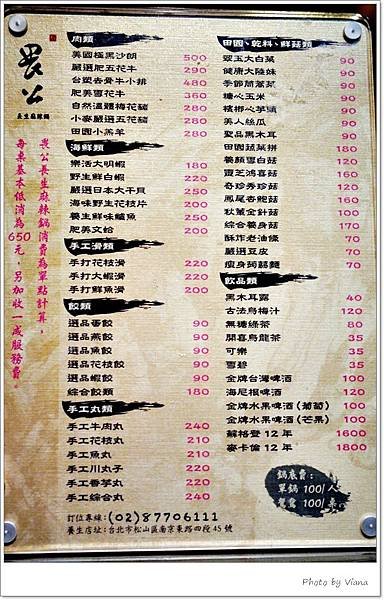 長公
長生麻辣鍋
長公長生麻辣鍋消費為單點計算,
每桌基本低消為650元,另加收一成服務費。
肉類
美國極黑沙朗 500
嚴選肥五花牛 290
台塑杏骨牛小排 480
肥美雪花牛 360
自然温體梅花豬 280
小麥嚴選五花豬 210
田園小羔羊 280
海鮮類
樂活大明蝦 180
野生鮮白蝦 220
嚴選日本大干貝 250
海味野生花枝片 200
養生鮮味鱸魚 250
肥美文蛤 200
手工滑類
手打花枝滑 220
手打大蝦滑 220
手打鮮魚滑 200
餃類
選品香餃 90
選品燕餃 90
選品魚餃 90
選品花枝餃 90
選品蝦餃 90
綜合餃類 180
手工丸類
手工牛肉丸 240
手工花枝丸 210
手工魚丸 210
手工川丸子 220
手工香芋丸 220
手工綜合丸 240
田園、乾料、鮮菇類
翠玉大白菜 90
健康大陸妹 90
季節茼蒿菜 90
糖心玉米 90
檳榔心芋頭 90
美人絲瓜 90
聖品黑木耳 90
田園蔬菜拼 180
養顏雪白菇 120
靈芝鴻喜菇 120
奇珍秀珍菇 120
鳳尾杏鮑菇 120
秋黃金針菇 100
綜合養身菇 170
酥炸老油條 70
嚴選豆皮 70
瘦身蒟蒻麵 70
飲品類
黑木耳露 40
古法烏梅汁 120
無糖綠茶 80
開喜烏龍茶 35
可樂 35
雪碧 35
金牌台灣啤酒 100
海尼根啤酒 120
金牌水果啤酒(葡萄) 100
金牌水果啤酒(芒果) 100
蘇格登12年 1600
麥卡倫12年 1800
鍋底費:
單鍋 100/人
鴛鴦 100/桌
訂位專線:(02)87706111
養生店址:台北市松山區南京東路四段45號
Photo by Viana